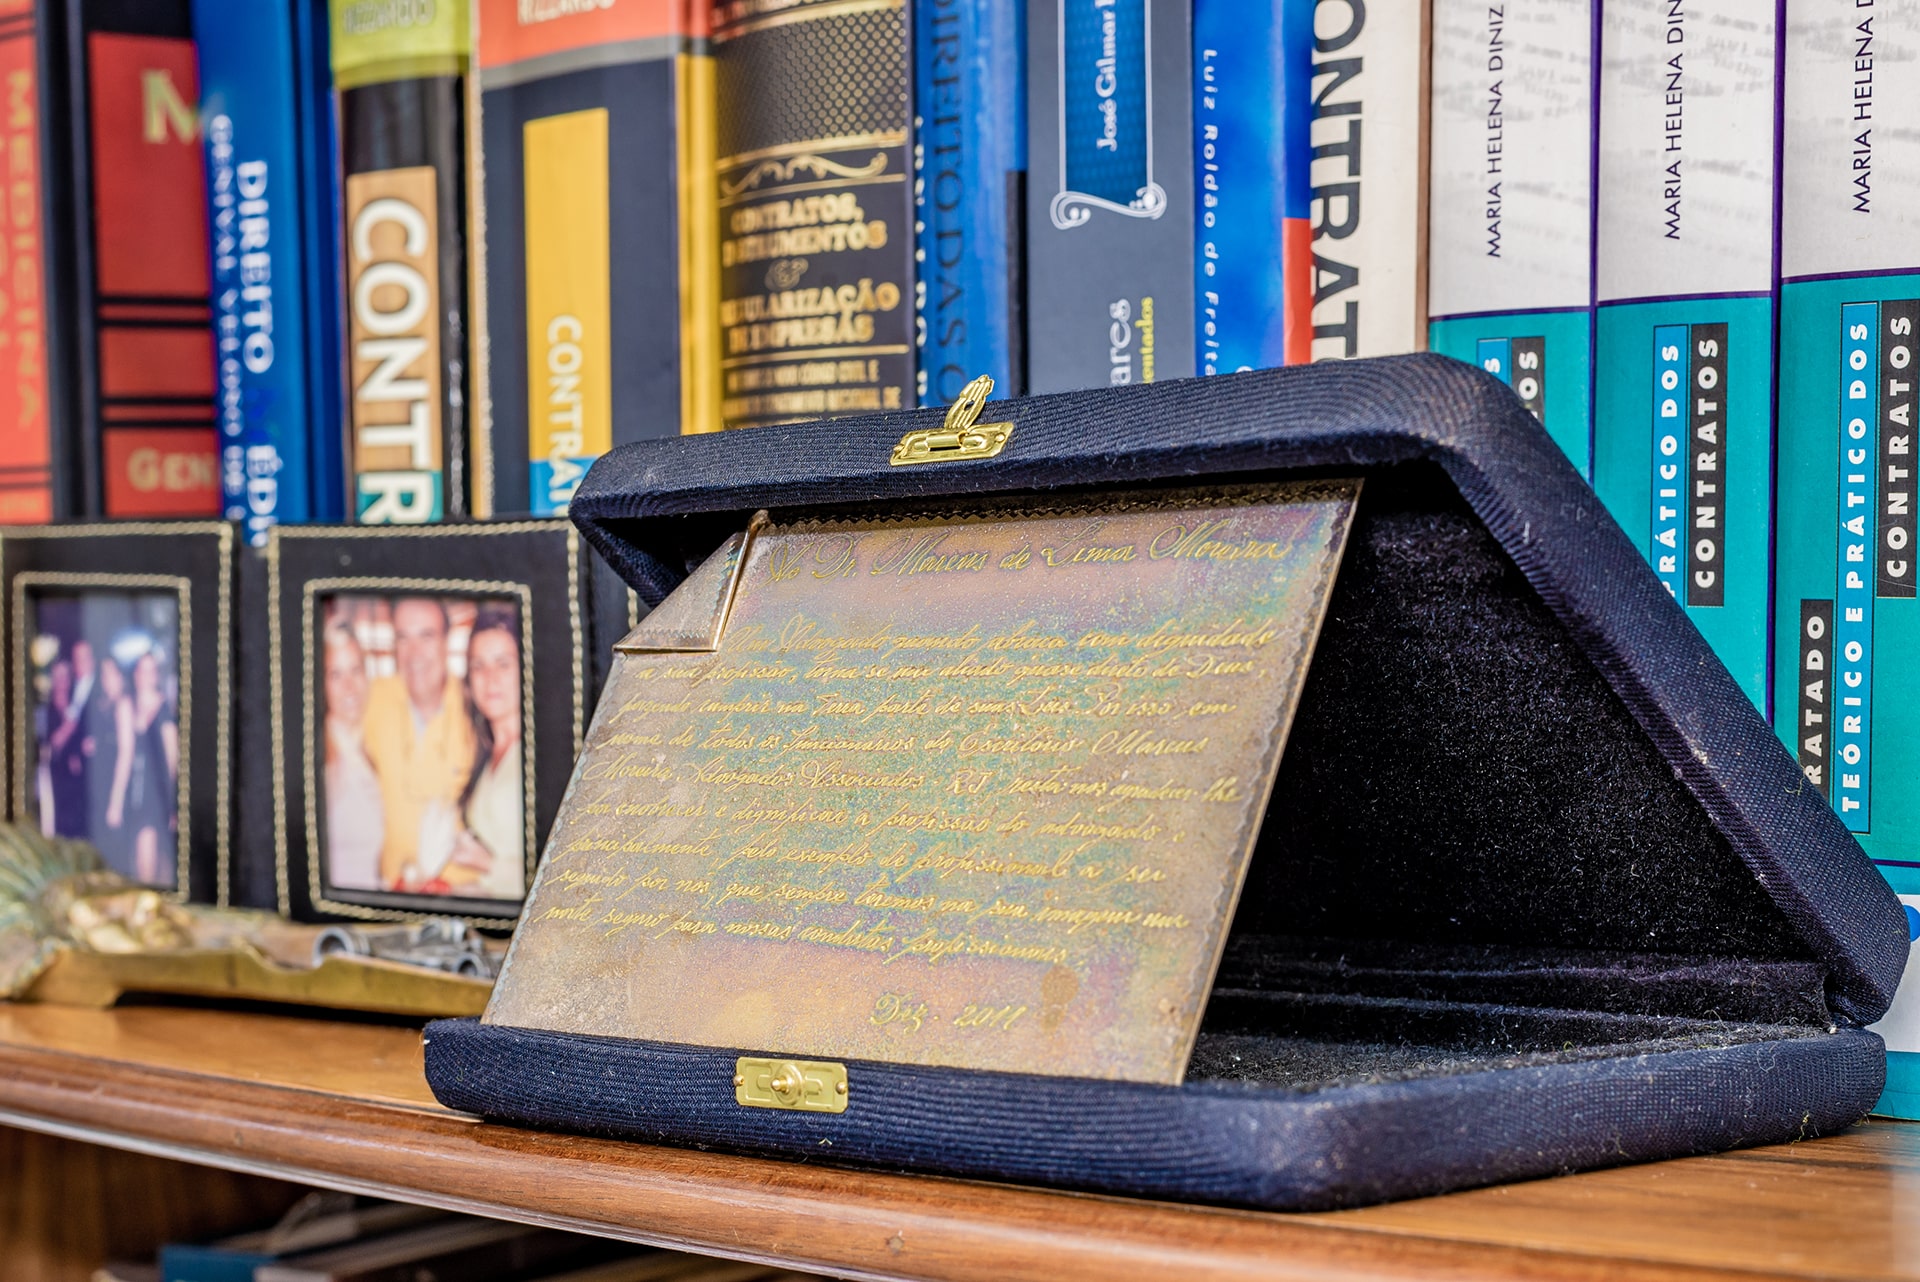 RIZZARDO
RIZZARDO
MEDICINA
M
GEN
DIREITO MÉDI
GENIVAL VELOSO DE
CONTR
CONTRAT
CONTRATOS,
INSTRUMENTOS
&
REGULARIZAÇÃO
DE EMPRESAS
DIREITO DAS
José Gilmar
ares
entados
Luiz Roldão de Freita
ONTRAT
MARIA HELENA DINIZ
OS
MARIA HELENA DIN
PRÁTICO DOS
CONTRATOS
MARIA HELENA D
RATADO
TEÓRICO E PRÁTICO DOS
CONTRATOS
Ao Dr. Marcus de Lima Moreira
Um Advogado quando abraça com dignidade
a sua profissão, torna-se um aliado quase direto de Deus,
fazendo cumprir na Terra parte de suas Leis. Por isso, em
nome de todos os funcionários do Escritório Marcus
Moreira Advogados Associados - RJ, resta nos agradecer lhe
por enobrecer e dignificar a profissão do advogado e
principalmente pelo exemplo de profissional a ser
seguido por nós, que sempre teremos na sua imagem um
norte seguro para nossas condutas profissionais.
Dez. 2011